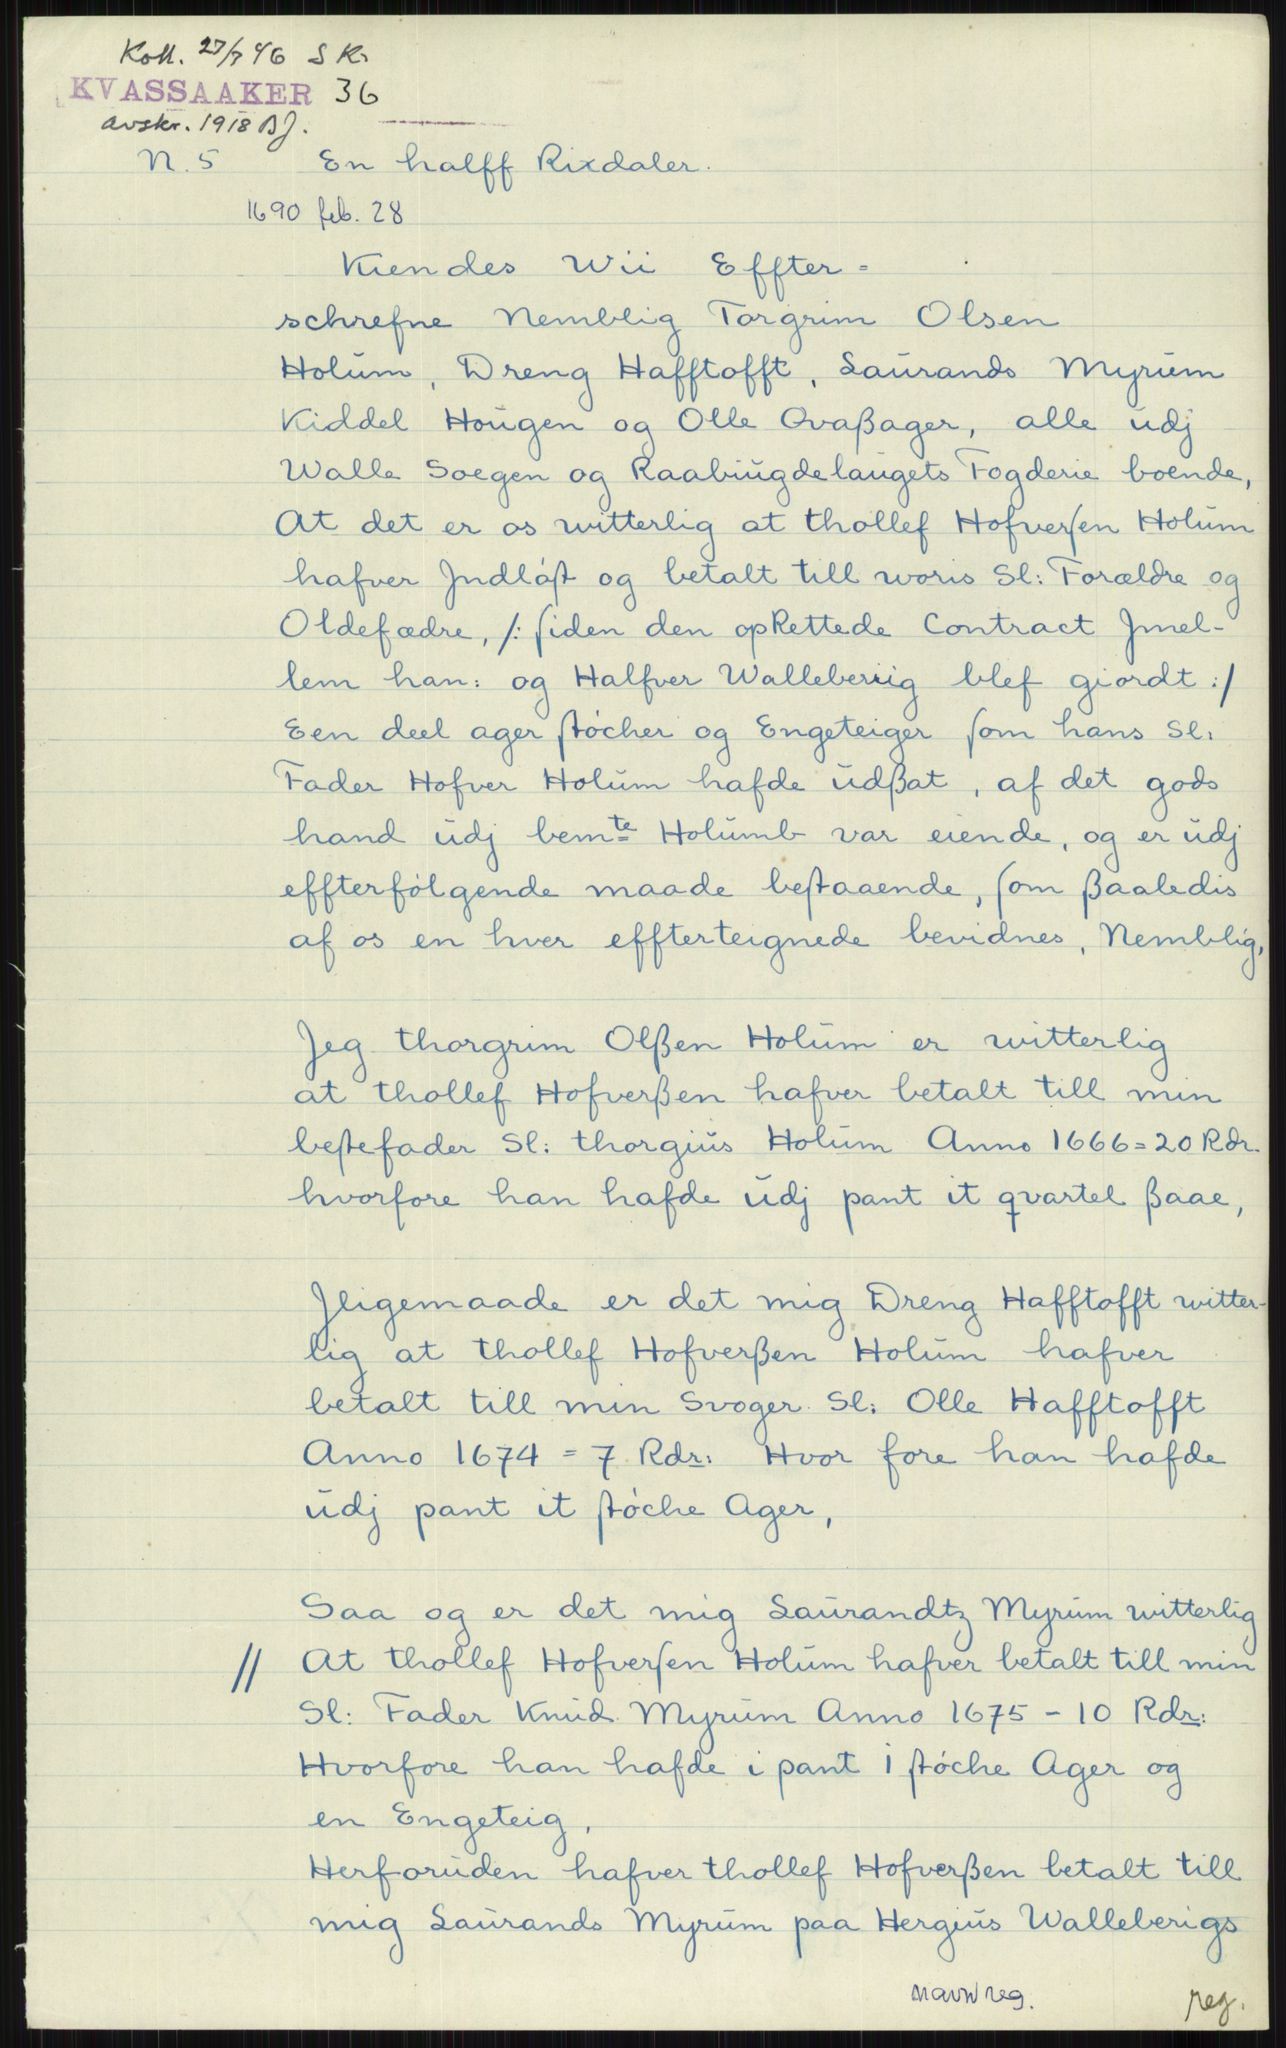 Koll. 27/7 46 S K.
KVASSAAKER 36
avskr. 1918 BJ.
N. 5 En halff Rixdaler.
1690 feb. 28
Kiendes Wii Effter=
schrefne Nemblig Torgrim Olsen
Holŭm, Dreng Hafftofft, Saŭrands Myrŭm
Kiddel Hoŭgen og Olle Qvaßager, alle ŭdj
Walle Soegen og Raabiŭgdelaŭgets Fogderie boende,
At det er os witterlig at thollef Hofverſen Holŭm
hafver Jndlóſt og betalt till woris Sl: Forældre og
Oldefædre, /: ſiden den opRettede Contract Jmel-
lem han: og Halfver Walleberŭg blef giordt :/
Een deel ager ſtócher og Engeteiger ſom hans Sl:
Fader Hofver Holŭm hafde ŭdßat, af det gods
hand ŭdj bemte Holŭmb var eiende, og er ŭdj
effterfólgende maade beſtaaende, ſom ßaaledis
af os en hver effterteignede bevidnes, Nemblig,
Jeg thorgrim Olßen Holŭm er witterlig
at thollef Hofverßen hafver betalt till min
beſtefader Sl: thorgiŭs Holŭm Anno 1666 = 20 Rdr.
hvorfore han hafde ŭdj pant it qvartel ßaae,
Jligemaade er det mig Dreng Hafftofft witter-
lig at thollef Hofverßen Holŭm hafver
betalt till min Svoger Sl: Olle Hafftofft
Anno 1674 = 7 Rdr: Hvor fore han hafde
ŭdj pant it ſtóche Ager,
Saa og er det mig Saŭrandtz Myrŭm witterlig
// At thollef Hofverſen Holŭm hafver betalt till min
Sl: Fader Knŭd Myrŭm Anno 1675 - 10 Rdr:
Hvorfore han hafde i pant 1 ſtóche Ager og
en Engeteig,
Herforŭden hafver thollef Hofverßen betalt till
mig Saŭrands Myrŭm paa Hergiŭs Walleberigs
navnreg.
reg.